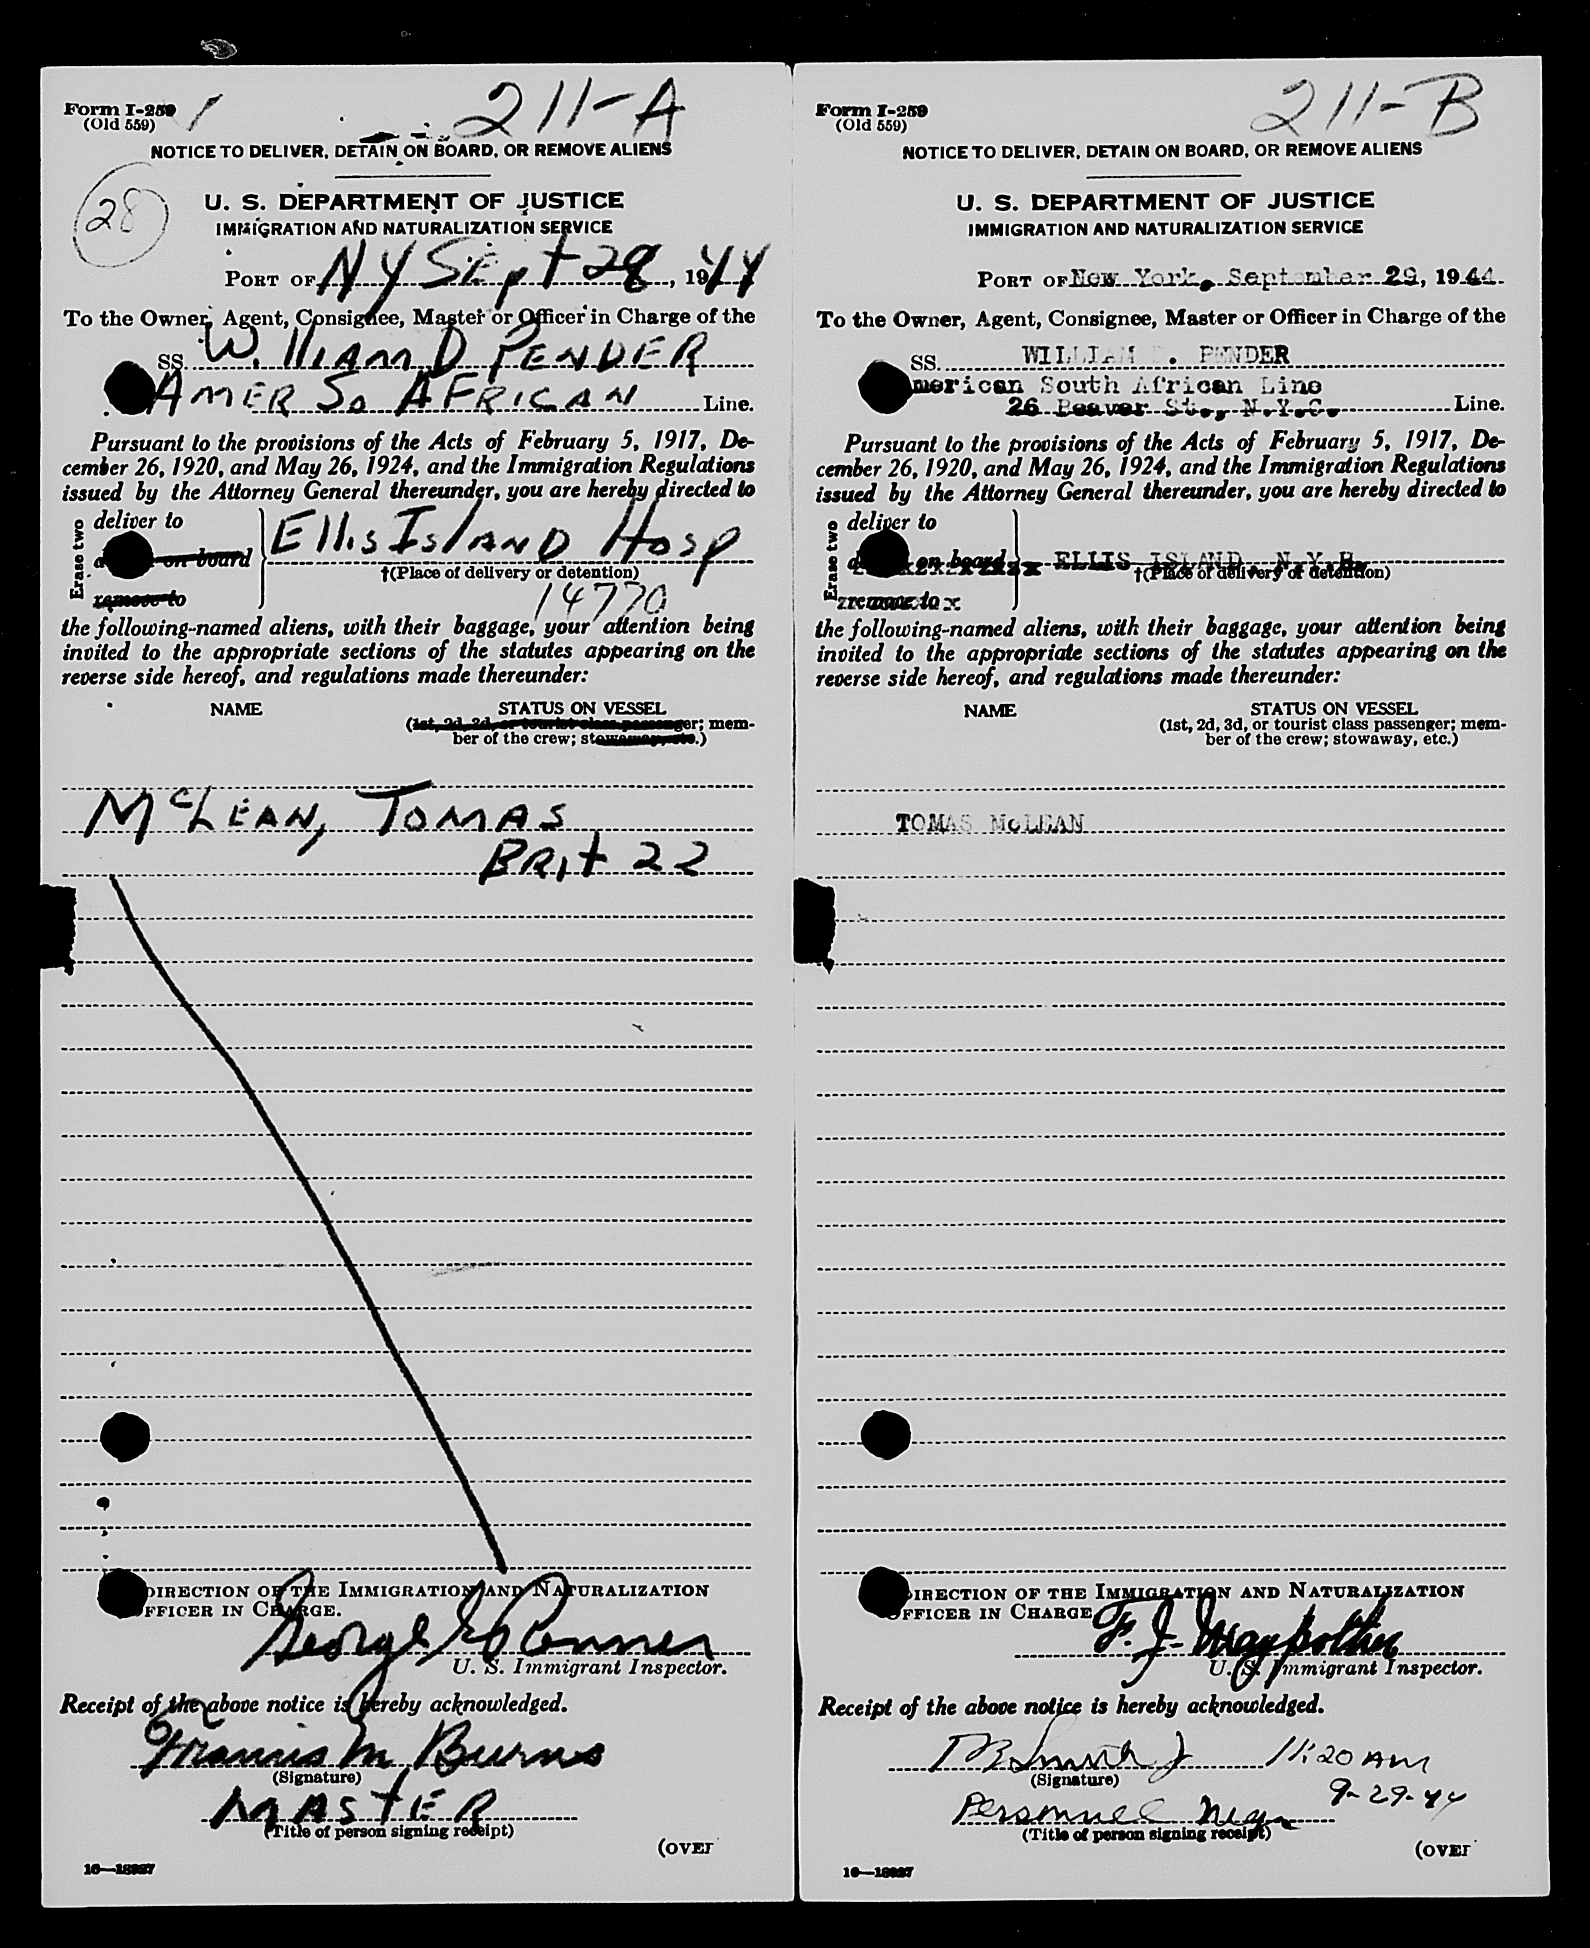 Form I-259
(Old 559)
211-A
NOTICE TO DELIVER, DETAIN ON BOARD, OR REMOVE ALIENS
28
U. S. DEPARTMENT OF JUSTICE
IMMIGRATION AND NATURALIZATION SERVICE
PORT OF NY SEpt 28, 1944
To the Owner, Agent, Consignee, Master or Officer in Charge of the
SS. William D PENDER
AMER So AFRICAN Line.
Pursuant to the provisions of the Acts of February 5, 1917, De-
cember 26, 1920, and May 26, 1924, and the Immigration Regulations
issued by the Attorney General thereunder, you are hereby directed to
Erase two
deliver to
on board
remove to
Ellis IslAND Hosp
†(Place of delivery or detention)
14770
the following-named aliens, with their baggage, your attention being
invited to the appropriate sections of the statutes appearing on the
reverse side hereof, and regulations made thereunder:
NAME
STATUS ON VESSEL
(1st, 2d, 3d, or tourist class passenger; mem-
ber of the crew; stowaway, etc.)
McLEAN, TOMAS
BRit 22
DIRECTION OF THE IMMIGRATION AND NATURALIZATION
OFFICER IN CHARGE.
George
U. S. Immigrant Inspector.
Receipt of the above notice is hereby acknowledged.
Francis M. Burns
(Signature)
MAStER
(Title of person signing receipt)
(OVER
16—18227
Form I-259
(Old 559)
211-B
NOTICE TO DELIVER, DETAIN ON BOARD, OR REMOVE ALIENS
U. S. DEPARTMENT OF JUSTICE
IMMIGRATION AND NATURALIZATION SERVICE
PORT OF New York, September 29, 1944.
To the Owner, Agent, Consignee, Master or Officer in Charge of the
SS. WILLIAM D. PENDER
American South African Line
26 Beaver St., N.Y.C. Line.
Pursuant to the provisions of the Acts of February 5, 1917, De-
cember 26, 1920, and May 26, 1924, and the Immigration Regulations
issued by the Attorney General thereunder, you are hereby directed to
Erase two
deliver to
on board
remove to
ELLIS ISLAND, N.Y.H.
†(Place of delivery or detention)
the following-named aliens, with their baggage, your attention being
invited to the appropriate sections of the statutes appearing on the
reverse side hereof, and regulations made thereunder:
NAME
STATUS ON VESSEL
(1st, 2d, 3d, or tourist class passenger; mem-
ber of the crew; stowaway, etc.)
TOMAS McLEAN
DIRECTION OF THE IMMIGRATION AND NATURALIZATION
OFFICER IN CHARGE
F. J. Maypother
U. S. Immigrant Inspector.
Receipt of the above notice is hereby acknowledged.
11:20 AM
(Signature)
9-29-44
Personnel Mgr
(Title of person signing receipt)
(OVER
16—18227